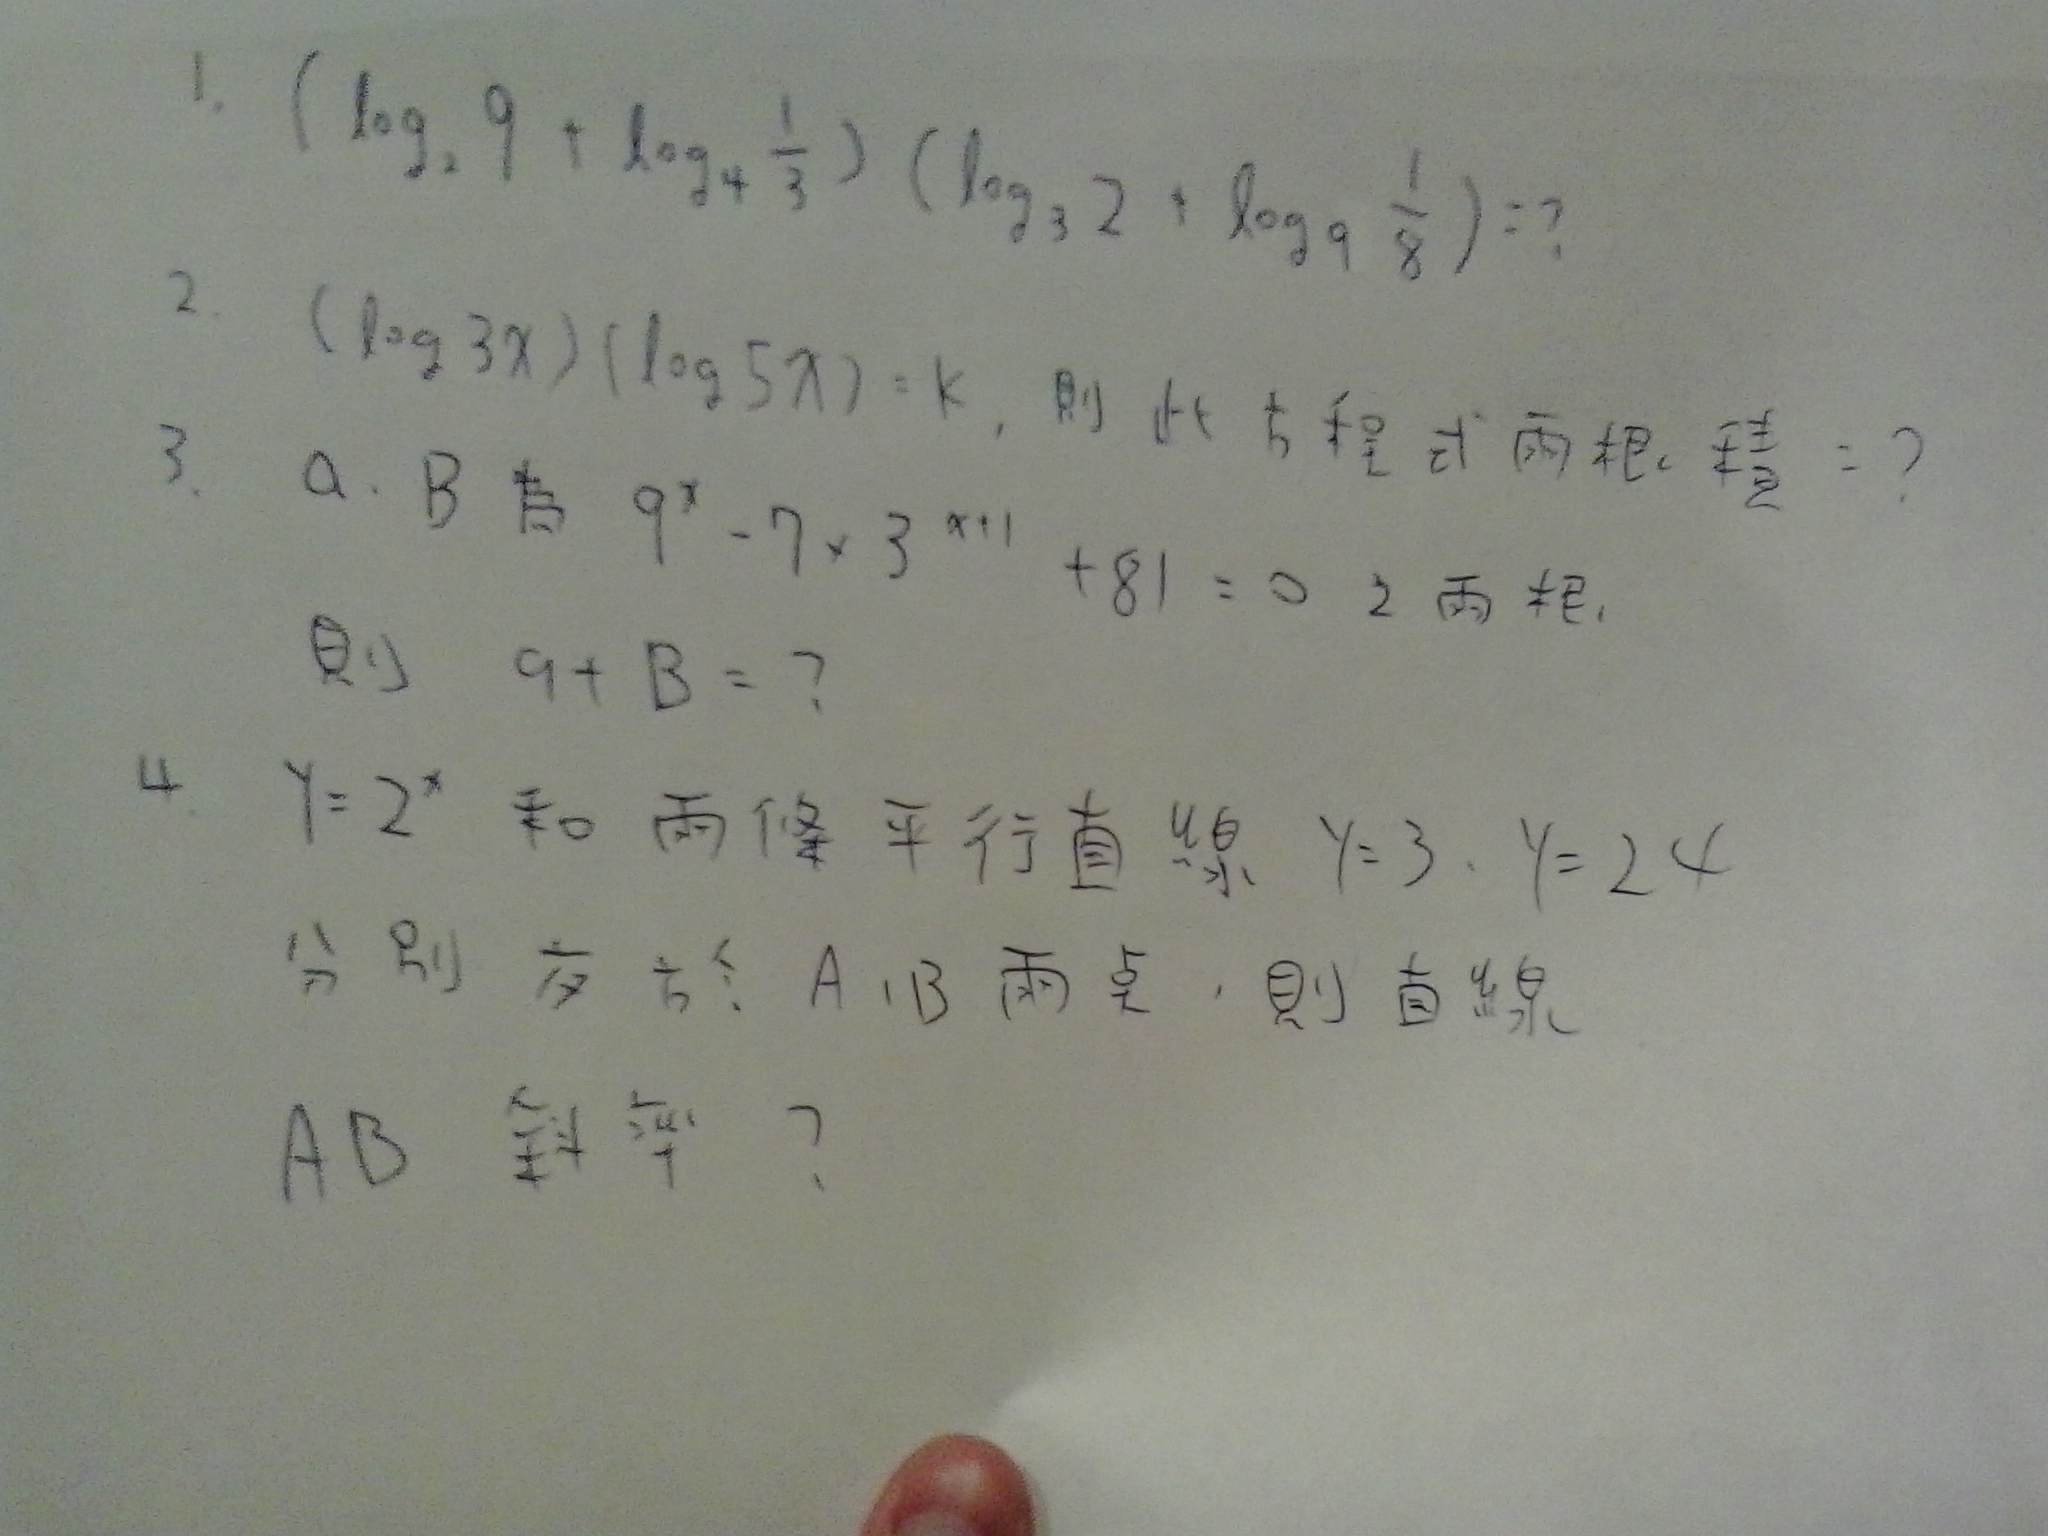 1. (log₂ 9 + log₄ 1/3) (log₃ 2 + log₉ 1/8) = ?
2. (log 3x)(log 5x) = k, 則此方程式兩根積 = ?
3. a. B 為 9ˣ - 7 × 3ˣ⁺¹ + 81 = 0 之兩根.
則 a + B = ?
4. Y = 2ˣ 和兩條平行直線 Y = 3、Y = 24
分別交於 A、B 兩點,則直線
AB 斜率 ?